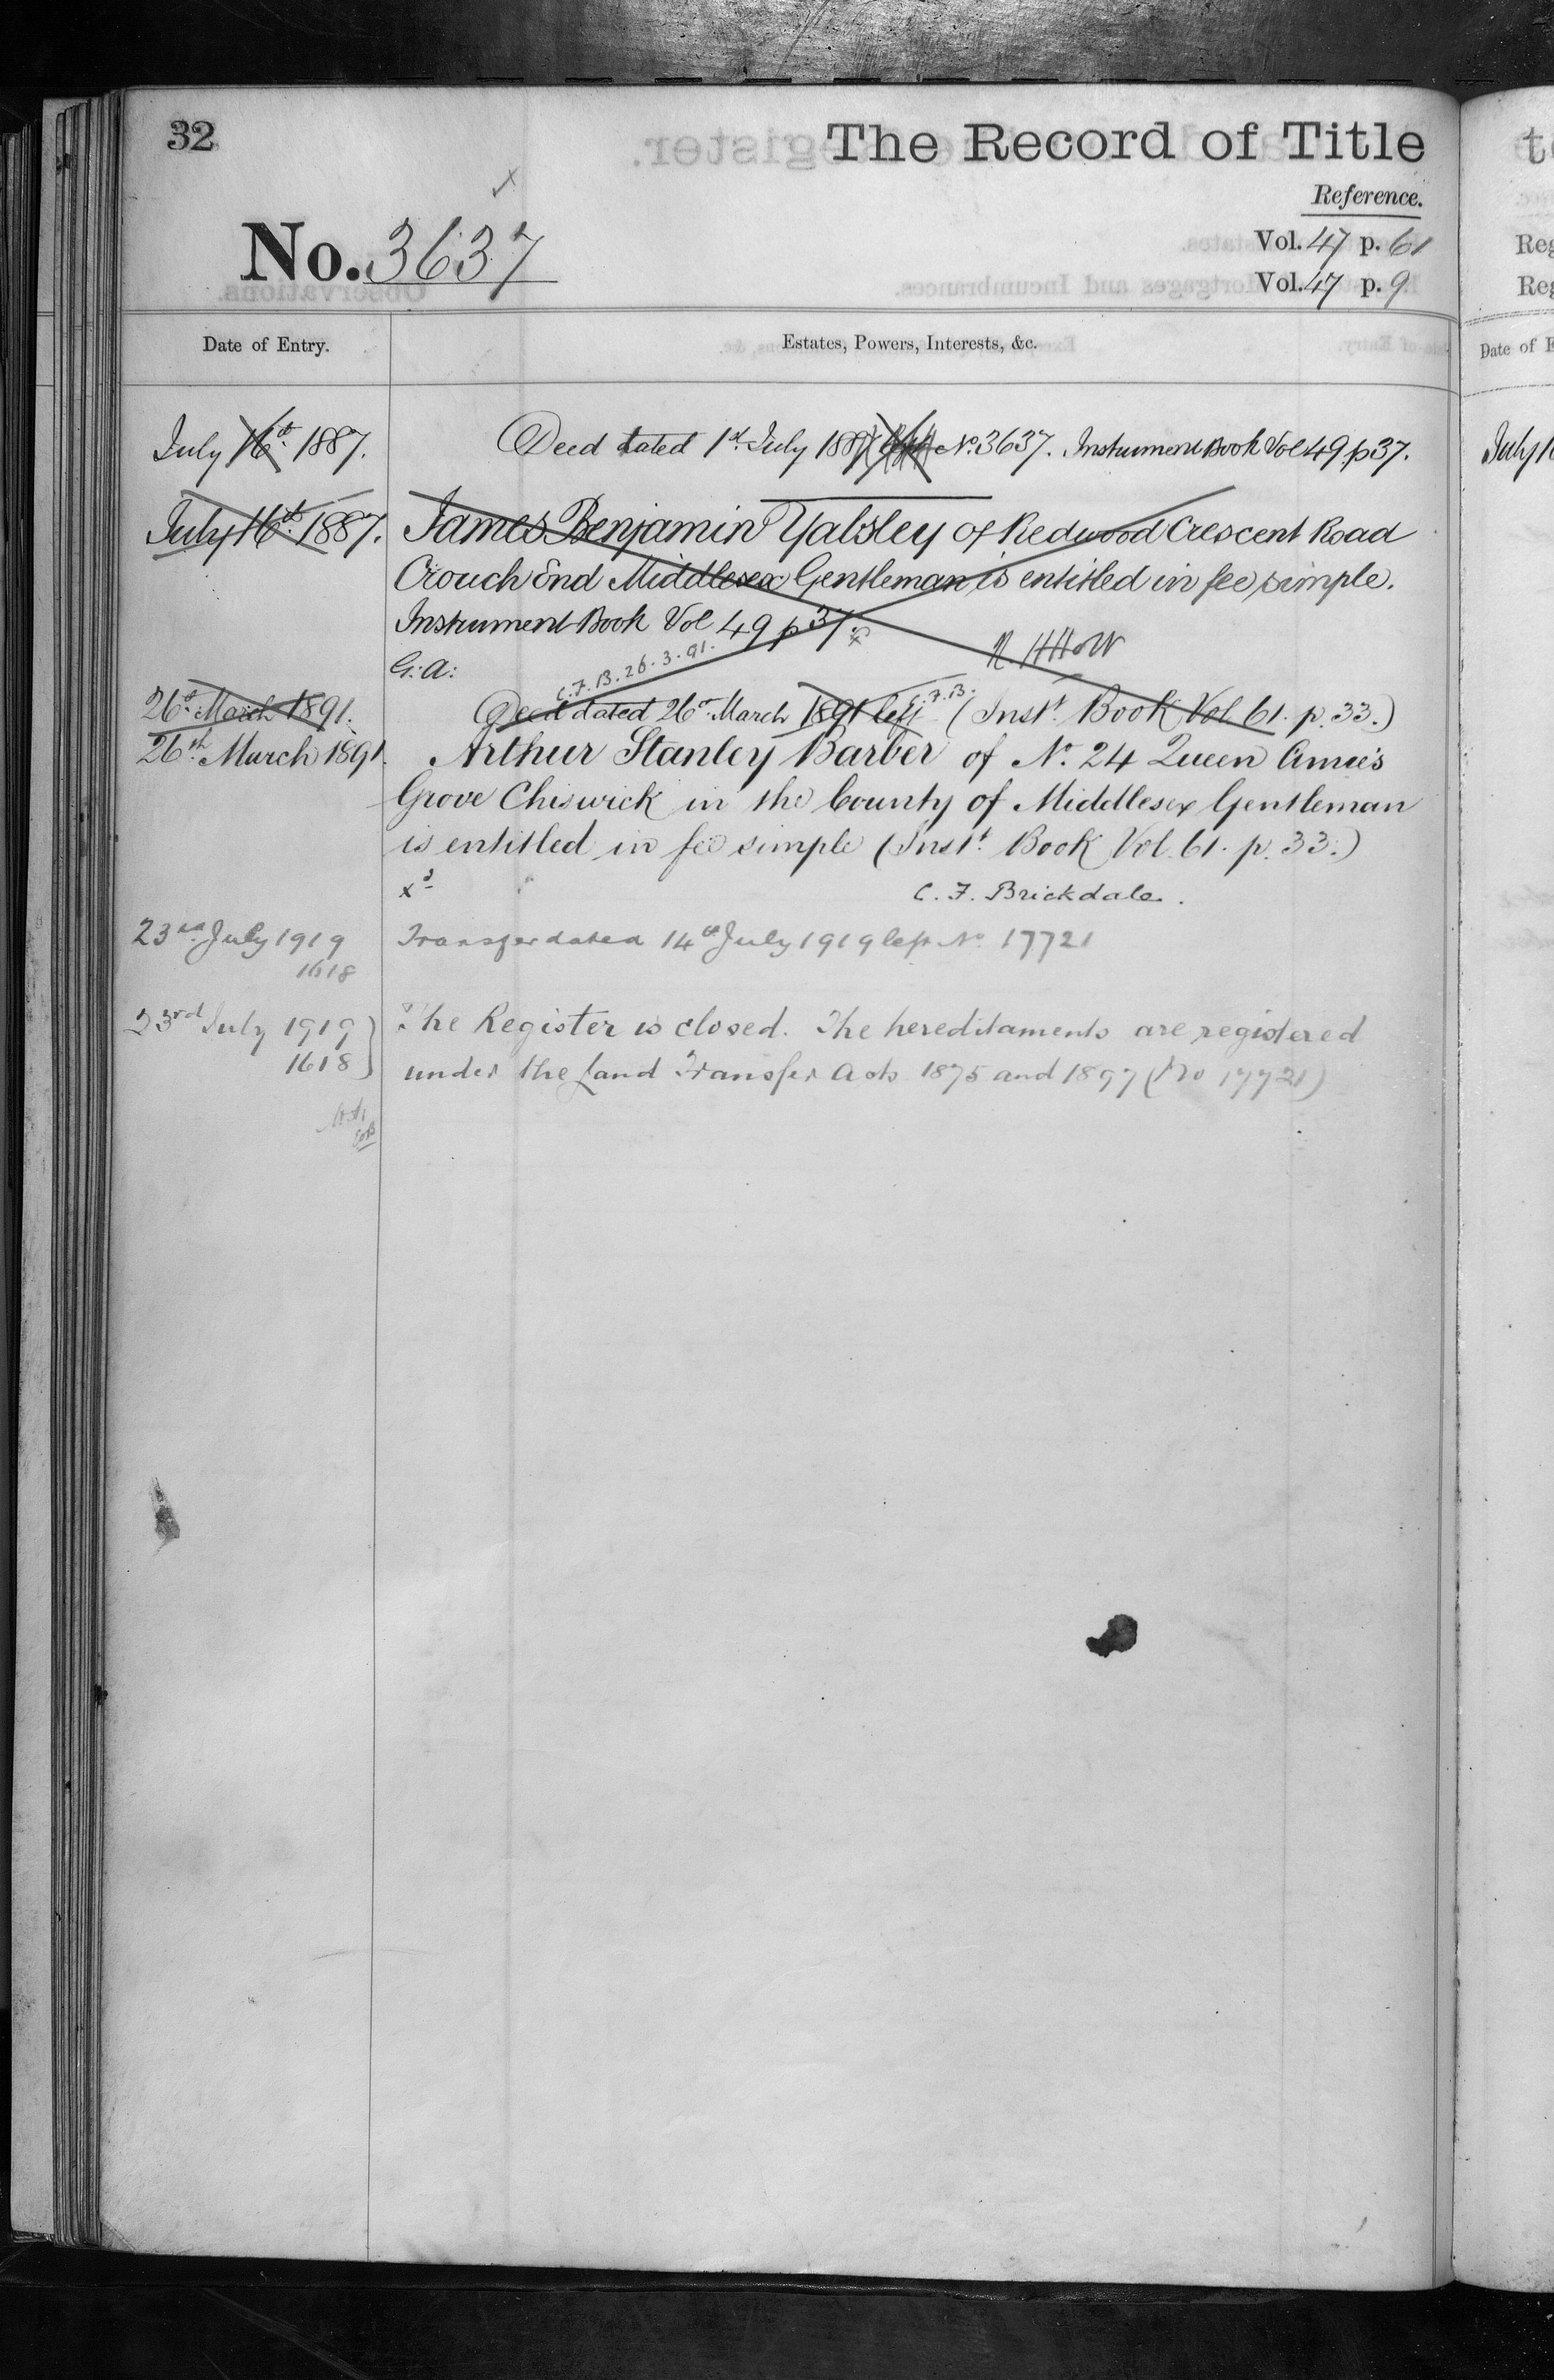 32
The Record of Title
Reference.
No. 3637
Vol. 47 p. 61
Vol. 47 p. 9
Date of Entry.
Estates, Powers, Interests, &c.
July 16th 1887. Deed dated 1st July 1887 No. 3637. Instrument Book Vol 49. p 37.
July 16th 1887. James Benjamin Yabsley of Redwood Crescent Road
Crouch End Middlesex Gentleman is entitled in fee simple.
Instrument Book Vol 49 p 37.
G: A: C.F.B. 26.3.91.
26th March 1891. Deed dated 26th March 1891 left C.F.B. (Inst. Book Vol 61. p. 33.)
26th March 1891. Arthur Stanley Barber of No. 24 Queen Anne's
Grove Chiswick in the County of Middlesex Gentleman
is entitled in fee simple (Inst. Book Vol. 61. p. 33.)
xd C. F. Brickdale.
23rd July 1919 Transfer dated 14th July 1919 left No. 17721
1618
23rd July 1919 The Register is closed. The hereditaments are registered
1618 under the Land Transfer Acts 1875 and 1897 (No 17721)
Reg
Reg
Date of E
July 1